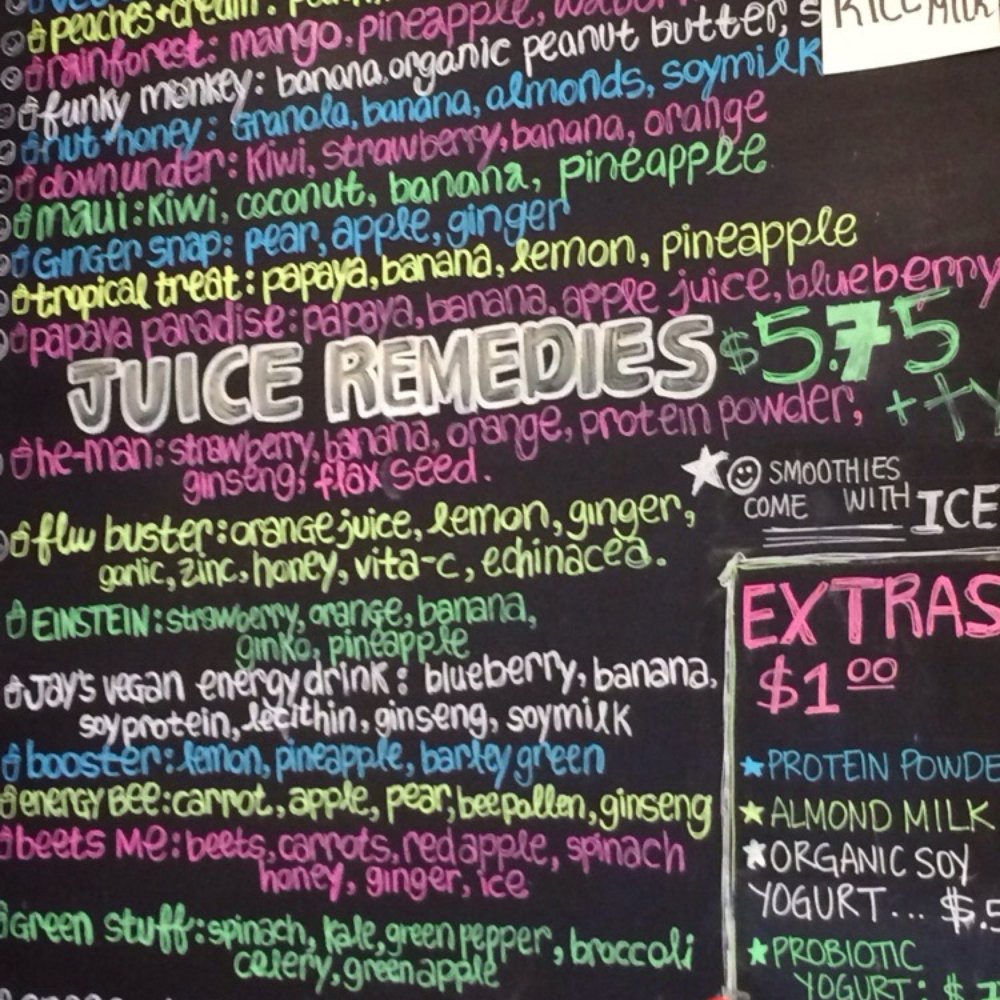 peaches+cream:
rainforest: mango, pineapple,
RICE MILK
funky monkey: banana, organic peanut butter, s
nut+honey: Granola, banana, almonds, soymilk
down under: Kiwi, strawberry, banana, orange
maui: Kiwi, coconut, banana, pineapple
GINGER snap: pear, apple, ginger
tropical treat: papaya, banana, lemon, pineapple
papaya paradise: papaya, banana, apple juice, blueberry
JUICE REMEDIES $5.75
he-man: strawberry, banana, orange, protein powder,
ginseng, flax seed.
++
☺ SMOOTHIES
COME WITH ICE
flu buster: orange juice, lemon, ginger,
garlic, zinc, honey, vita-c, echinacea.
EINSTEIN: strawberry, orange, banana,
ginko, pineapple
Jay's vegan energy drink: blueberry, banana,
soy protein, lecithin, ginseng, soymilk
booster: lemon, pineapple, barley green
energy Bee: carrot, apple, pear, bee pollen, ginseng
beets Me: beets, carrots, red apple, spinach
honey, ginger, ice
Green stuff: spinach, kale, green pepper, broccoli
celery, green apple
EXTRAS
$1.00
★PROTEIN POWDE
★ALMOND MILK
★ORGANIC SOY
YOGURT... $.5
★PROBIOTIC
YOGURT: $